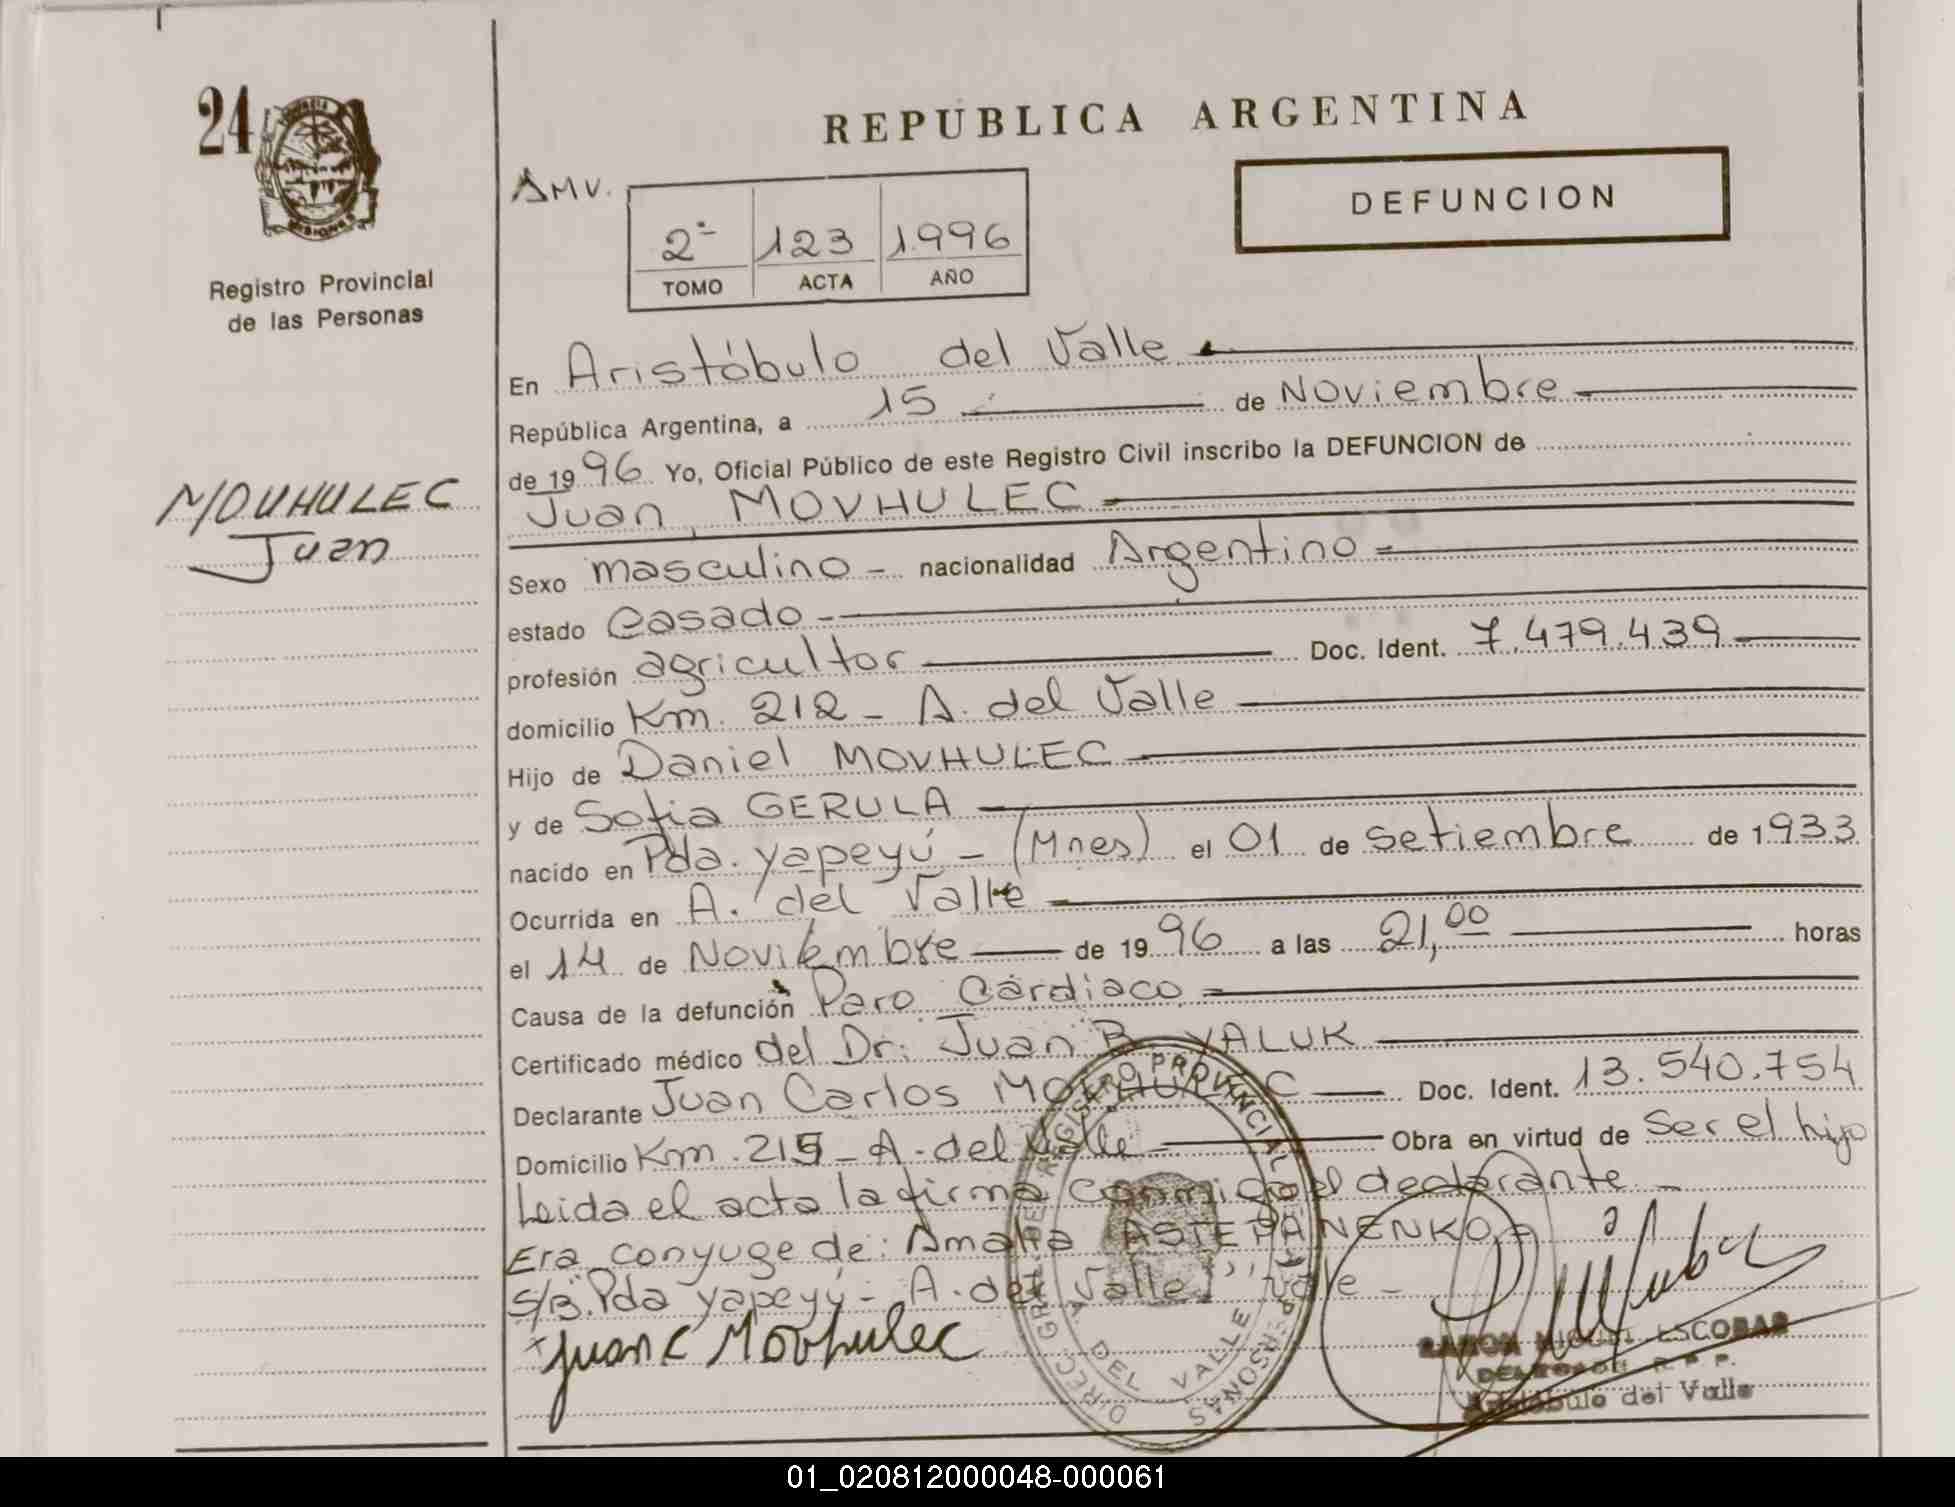 24
Registro Provincial
de las Personas
MOVHULEC
Juan
REPUBLICA ARGENTINA
AMV.
2º 123 1.996
TOMO ACTA AÑO
DEFUNCION
En Aristóbulo del Valle
República Argentina, a 15 de Noviembre
de 1996 Yo, Oficial Público de este Registro Civil inscribo la DEFUNCION de
Juan, MOVHULEC
Sexo masculino - nacionalidad Argentino
estado Casado
profesión agricultor Doc. Ident. 7.479.439
domicilio Km. 212 - A. del Valle
Hijo de Daniel MOVHULEC
y de Sofia GERULA
nacido en Pda. yapeyú - (Mnes) el 01 de setiembre de 1933
Ocurrida en A. del Valle
el 14 de Noviembre de 1996 a las 21,00 horas
Causa de la defunción Paro Cárdiaco
Certificado médico del Dr. Juan B. YALUK
Declarante Juan Carlos MOVHULEC Doc. Ident. 13.540.754
Domicilio Km. 215 - A. del Valle Obra en virtud de Ser el hijo
Leida el acta la firma conmigo el declarante -
Era conyuge de: Amalia ASTEPANENKO -
S/B. Pda yapeyú - A. del Valle, Vale -
Juan C Movhulec
REGISTRO PROVINCIAL DE LAS PERSONAS
A. DEL VALLE
RAMON MIGUEL ESCOBAR
DELEGADO R. P. P.
Aristóbulo del Valle
01_020812000048-000061